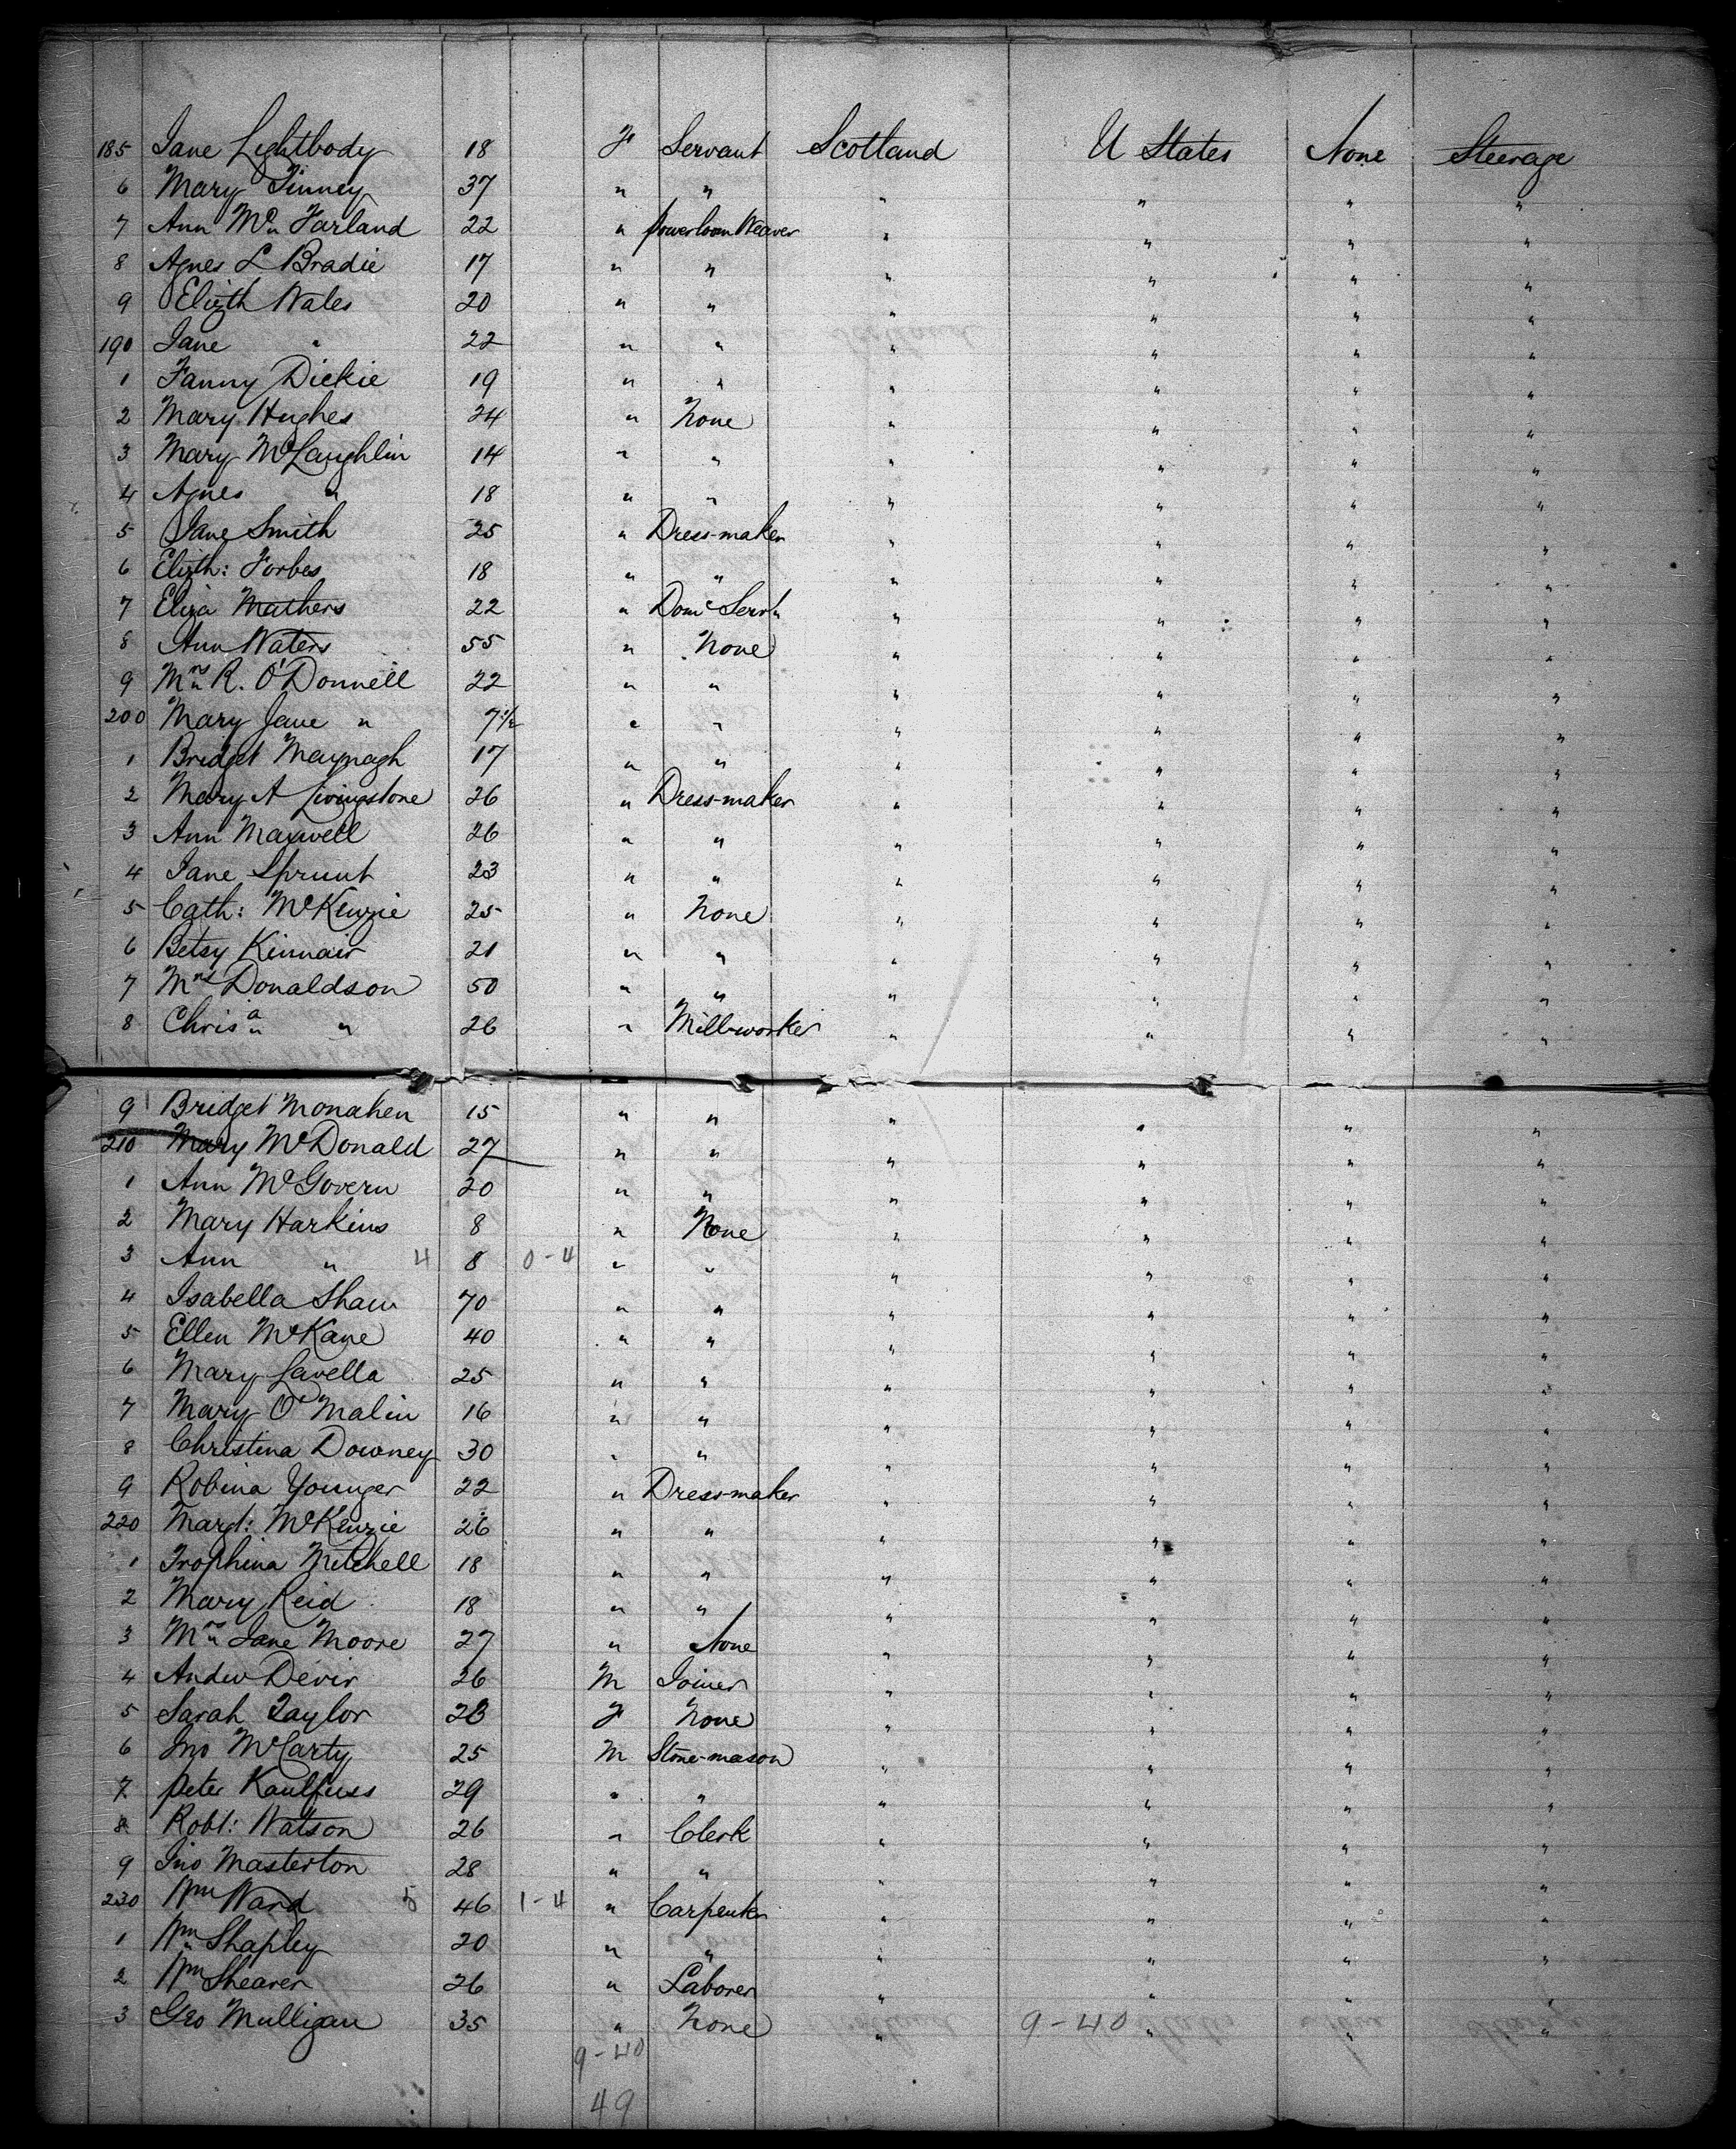 185 Jane Lightbody 18 F Servant Scotland U States None Steerage
6 Mary Finney 37 " " " " " "
7 Ann Mc Farland 22 " powerloom Weaver " " " "
8 Agnes L Bradie 17 " " " " " "
9 Elizth Wales 20 " " " " " "
190 Jane " 22 " " " " " "
1 Fanny Dickie 19 " " " " " "
2 Mary Hughes 24 " None " " " "
3 Mary McLaughlin 14 " " " " " "
4 Agnes " 18 " " " " " "
5 Jane Smith 25 " Dress-maker " " " "
6 Elizth: Forbes 18 " " " " " "
7 Eliza Mathers 22 " Domc Servt " " " "
8 Ann Waters 55 " None " " " "
9 Mrs R. O'Donnell 22 " " " " " "
200 Mary Jane " 7 1/2 " " " " " "
1 Bridget 17 " " " " " "
2 Mary A Livingstone 26 " Dress-maker " " " "
3 Ann Maxwell 26 " " " " " "
4 Jane Sprunt 23 " " " " " "
5 Cath: McKenzie 25 " None " " " "
6 Betsy Kinnair 21 " " " " " "
7 Mrs Donaldson 50 " " " " " "
8 Chrisa " 26 " Mill-worker " " " "
9 Bridget Monahen 15 " " " " " "
210 Mary McDonald 27 " " " " " "
1 Ann McGovern 20 " " " " " "
2 Mary Harkins 8 " None " " " "
3 Ann " 4 8 0-4 " " " " " "
4 Isabella Shaw 70 " " " " " "
5 Ellen McKane 40 " " " " " "
6 Mary Lavella 25 " " " " " "
7 Mary O'Malin 16 " " " " " "
8 Christina Downey 30 " " " " " "
9 Robina Younger 22 " Dress-maker " " " "
220 Margt: McKenzie 26 " " " " " "
1 Trophina Mitchell 18 " " " " " "
2 Mary Reid 18 " " " " " "
3 Mrs Jane Moore 27 " None " " " "
4 Andw Devir 26 M Joiner " " " "
5 Sarah Taylor 23 F None " " " "
6 Jno McCarty 25 M Stone-mason " " " "
7 Peter Kaulfuss 29 " " " " " "
8 Robt: Watson 26 " Clerk " " " "
9 Jno Masterton 28 " " " " " "
230 Wm Ward 5 46 1-4 " Carpenter " " " "
1 Wm Shapley 20 " " " " " "
2 Wm Shearer 26 " Laborer " " " "
3 Geo Mulligan 35 " None " 9-40 " " "
9-40
49